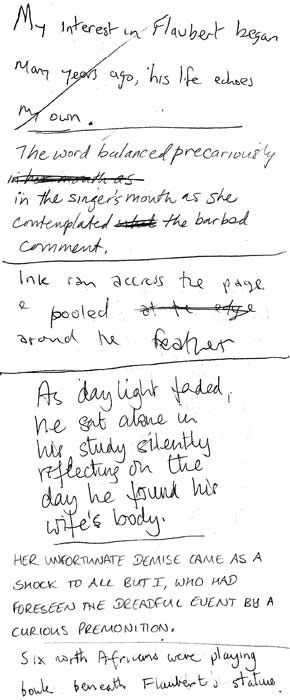 My interest in Flaubert began
Many years ago, his life echoes
my own.
The word balanced precariously
in her mouth as
in the singer's mouth as she
contemplated what the barbed
comment.
Ink ran accross the page
e pooled at the edge
around he feather
As daylight faded,
he sat alone in
his study silently
reflecting on the
day he found his
wife's body.
HER UNFORTUNATE DEMISE CAME AS A
SHOCK TO ALL BUT I, WHO HAD
FORESEEN THE DREADFUL EVENT BY A
CURIOUS PREMONITION.
Six north Africans were playing
boule beneath Flaubert's statue.